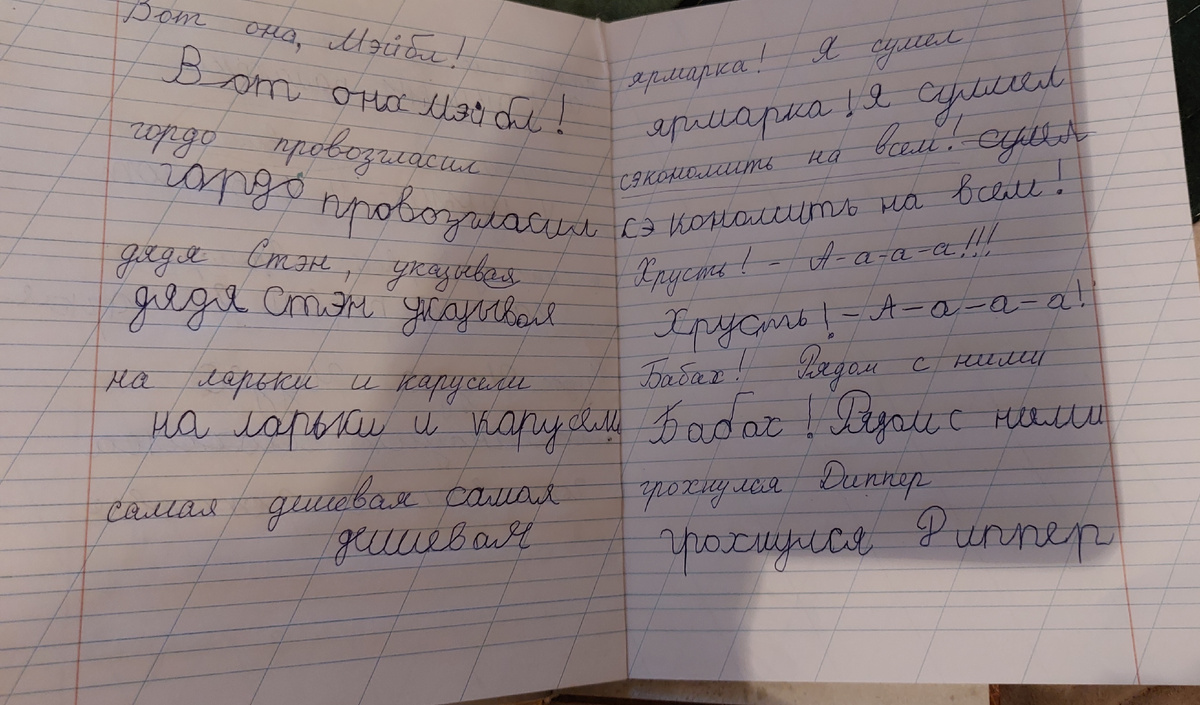 Вот она, Мэйбл!
Вот она Мэйбл!
гордо провозгласил
гордо провозгласил
дядя Стэн, указывая
дядя Стэн указывая
на ларьки и карусели
на ларьки и карусели
самая дешевая самая
дешевая
ярмарка! Я сумел
ярмарка! Я суммел
сэкономить на всем! сумел
сэкономить на всем!
Хрусть! - А-а-а-а!!!
Хрусть! - А-а-а-а!
Бабах! Рядом с ними
Бабах! Рядом с ними
грохнулся Диппер
грохнулся Диппер